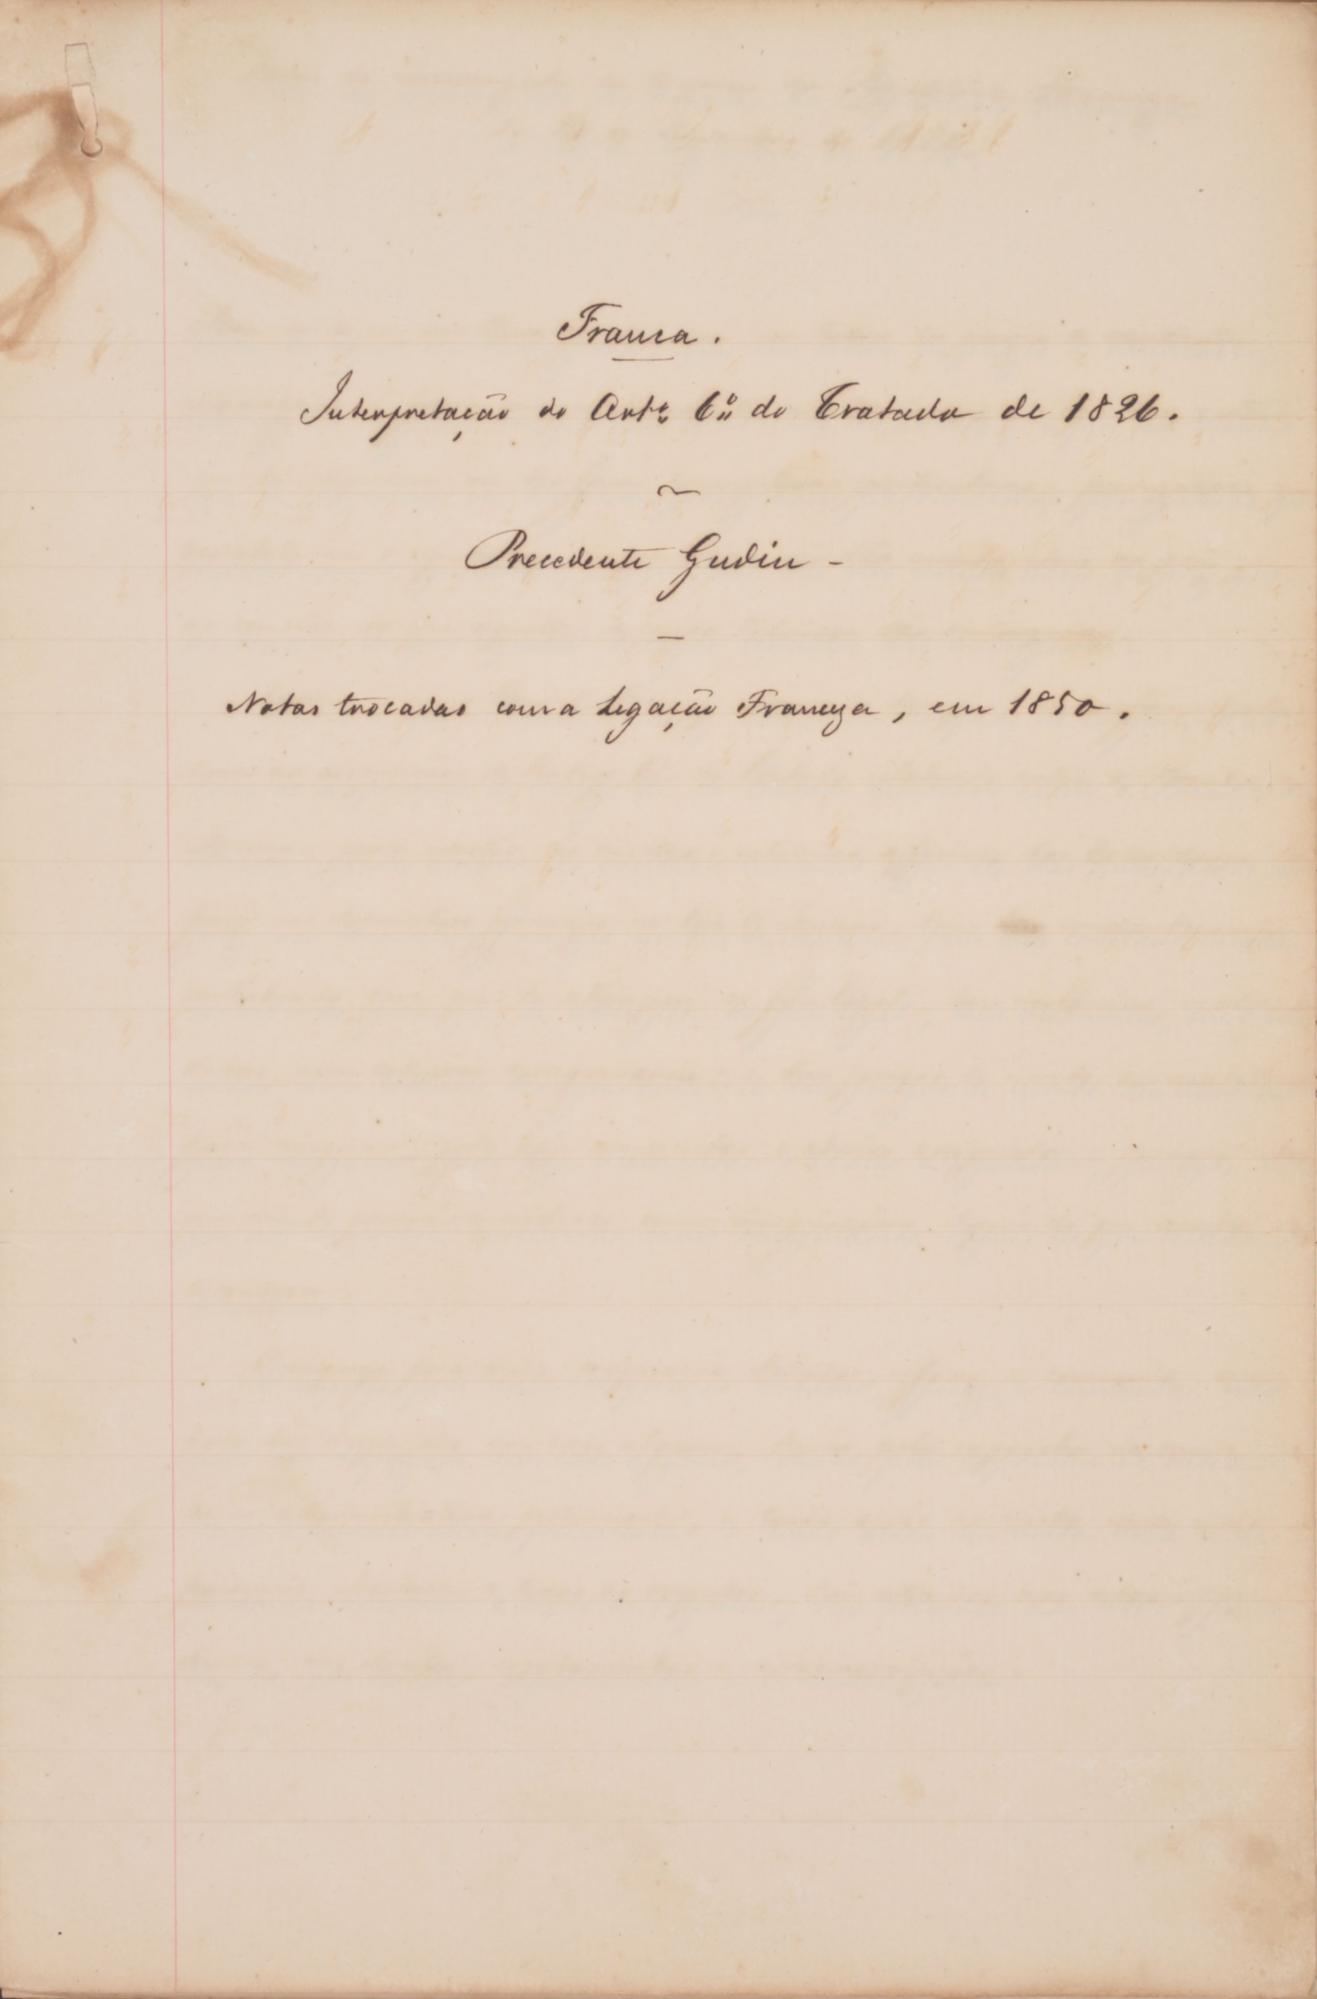 Franca.
Interpretação do Artº 6º do Tratado de 1826.
Precedente Gudin -
Notas trocadas com a Legação Franceza, em 1850.